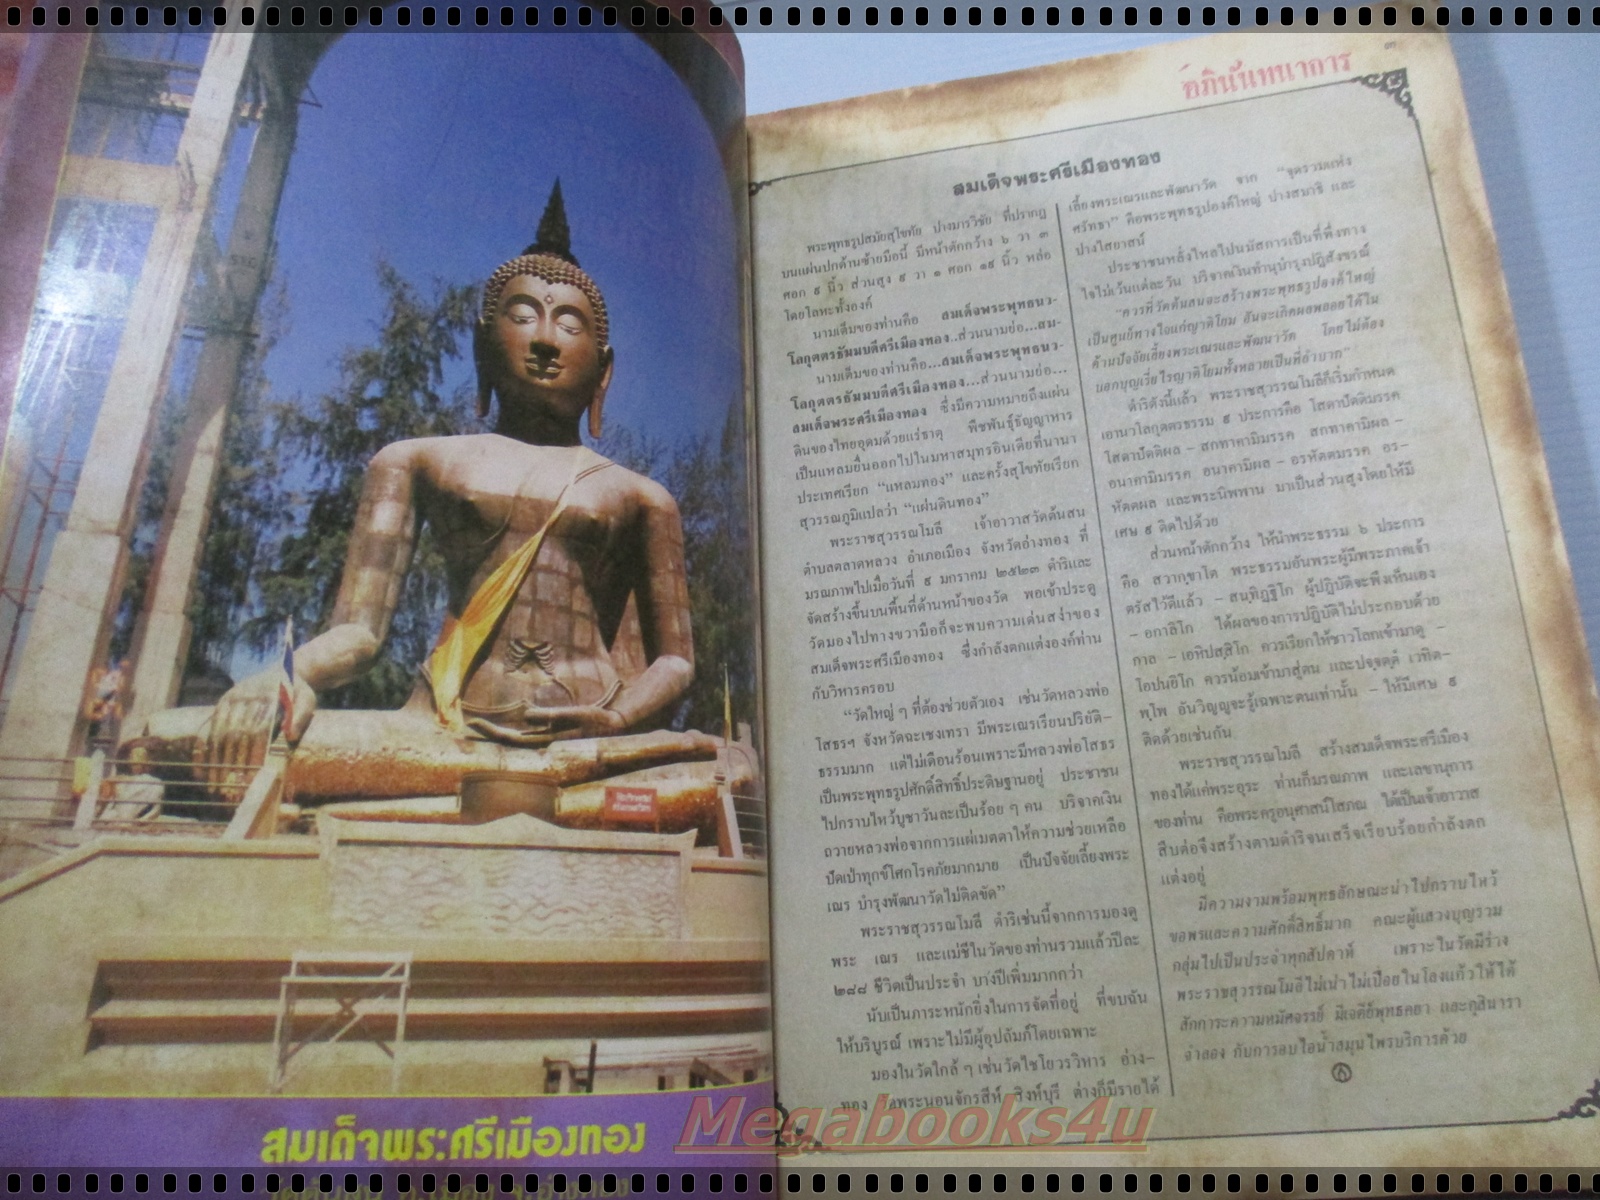 สมเด็จพระศรีเมืองทอง
วัดต้นสน อ.เมือง จ.อ่างทอง
อภินันทนาการ
๓
สมเด็จพระศรีเมืองทอง
พระพุทธรูปสมัยสุโขทัย ปางมารวิชัย ที่ปรากฏ
บนแผ่นปกด้านซ้ายมือนี้ มีหน้าตักกว้าง ๖ วา ๓
ศอก ๙ นิ้ว ส่วนสูง ๙ วา ๑ ศอก ๑๙ นิ้ว หล่อ
โดยโลหะทั้งองค์
นามเต็มของท่านคือ สมเด็จพระพุทธนว-
โลกุตตรธัมมบดีศรีเมืองทอง..ส่วนนามย่อ...สม-
นามเต็มของท่านคือ...สมเด็จพระพุทธนว-
โลกุตตรธัมมบดีศรีเมืองทอง...ส่วนนามย่อ...
สมเด็จพระศรีเมืองทอง ซึ่งมีความหมายถึงแผ่น
ดินของไทยอุดมด้วยแร่ธาตุ พืชพันธุ์ธัญญาหาร
เป็นแหลมยื่นออกไปในมหาสมุทรอินเดียที่นานา
ประเทศเรียก “แหลมทอง” และครั้งสุโขทัยเรียก
สุวรรณภูมิแปลว่า “แผ่นดินทอง”
พระราชสุวรรณโมลี เจ้าอาวาสวัดต้นสน
ตำบลตลาดหลวง อำเภอเมือง จังหวัดอ่างทอง ที่
มรณภาพไปเมื่อวันที่ ๙ มกราคม ๒๕๒๓ ดำริและ
จัดสร้างขึ้นบนพื้นที่ด้านหน้าของวัด พอเข้าประตู
วัดมองไปทางขวามือก็จะพบความเด่นสง่าของ
สมเด็จพระศรีเมืองทอง ซึ่งกำลังตกแต่งองค์ท่าน
กับวิหารครอบ
“วัดใหญ่ ๆ ที่ต้องช่วยตัวเอง เช่นวัดหลวงพ่อ
โสธรฯ จังหวัดฉะเชงเทรา มีพระเณรเรียนปริยัติ-
ธรรมมาก แต่ไม่เดือนร้อนเพราะมีหลวงพ่อโสธร
เป็นพระพุทธรูปศักดิ์สิทธิ์ประดิษฐานอยู่ ประชาชน
ไปกราบไหว้บูชาวันละเป็นร้อย ๆ คน บริจาคเงิน
ถวายหลวงพ่อจากการแผ่เมตตาให้ความช่วยเหลือ
ปัดเป่าทุกข์โศกโรคภัยมากมาย เป็นปัจจัยเลี้ยงพระ
เณร บำรุงพัฒนาวัดไม่ติดขัด”
พระราชสุวรรณโมลี ดำริเช่นนี้จากการมองดู
พระ เณร และแม่ชีในวัดของท่านรวมแล้วปีละ
๒๘๘ ชีวิตเป็นประจำ บางปีเพิ่มมากกว่า
นับเป็นภาระหนักยิ่งในการจัดที่อยู่ ที่ขบฉัน
ให้บริบูรณ์ เพราะไม่มีผู้อุปถัมภ์โดยเฉพาะ
มองในวัดใกล้ ๆ เช่นวัดไชโยวรวิหาร อ่าง-
ทอง วัดพระนอนจักรสีห์ สิงห์บุรี ต่างก็มีรายได้
เลี้ยงพระเณรและพัฒนาวัด จาก “จุดรวมแห่ง
ศรัทธา” คือพระพุทธรูปองค์ใหญ่ ปางสมาธิ และ
ปางไสยาสน์
ประชาชนหลั่งไหลไปนมัสการเป็นที่พึ่งทาง
ใจไม่เว้นแต่ละวัน บริจาคเงินทำนุบำรุงปฏิสังขรณ์
“ควรที่วัดต้นสนจะสร้างพระพุทธรูปองค์ใหญ่
เป็นศูนย์ทางใจแก่ญาติโยม อันจะเกิดผลพลอยได้ใน
ด้านปัจจัยเลี้ยงพระเณรและพัฒนาวัด โดยไม่ต้อง
บอกบุญเรี่ยไรญาติโยมทั้งหลายเป็นที่ลำบาก”
ดำริดังนี้แล้ว พระราชสุวรรณโมลีก็เริ่มกำหนด
เอานวโลกุตตรธรรม ๙ ประการคือ โสดาปัตติมรรค
โสดาปัตติผล - สกทาคามิมรรค สกทาคามิผล -
อนาคามิมรรค อนาคามิผล - อรหัตตมรรค อร-
หัตตผล และพระนิพพาน มาเป็นส่วนสูงโดยให้มี
เศษ ๙ ติดไปด้วย
ส่วนหน้าตักกว้าง ให้นำพระธรรม ๖ ประการ
คือ สวากฺขาโต พระธรรมอันพระผู้มีพระภาคเจ้า
ตรัสไว้ดีแล้ว - สนฺทิฏฺฐิโก ผู้ปฏิบัติจะพึงเห็นเอง
- อกาลิโก ได้ผลของการปฏิบัติไม่ประกอบด้วย
กาล - เอหิปสฺสิโก ควรเรียกให้ชาวโลกเข้ามาดู -
โอปนยิโก ควรน้อมเข้ามาสู่ตน และปจฺจตฺตํ เวทิต-
พฺโพ อันวิญญูจะรู้เฉพาะตนเท่านั้น - ให้มีเศษ ๙
ติดด้วยเช่นกัน
พระราชสุวรรณโมลี สร้างสมเด็จพระศรีเมือง
ทองได้แค่พระอุระ ท่านก็มรณภาพ และเลขานุการ
ของท่าน คือพระครูอนุศาสน์โสภณ ได้เป็นเจ้าอาวาส
สืบต่อจึงสร้างตามดำริจนเสร็จเรียบร้อยกำลังตก
แต่งอยู่
มีความงามพร้อมพุทธลักษณะน่าไปกราบไหว้
ขอพรและความศักดิ์สิทธิ์มาก คณะผู้แสวงบุญรวม
กลุ่มไปเป็นประจำทุกสัปดาห์ เพราะในวัดมีร่าง
พระราชสุวรรณโมลีไม่เน่าไม่เปื่อยในโลงแก้วให้ได้
สักการะความหมัศจรรย์ มีเจดีย์พุทธคยา และกุสินารา
จำลอง กับการอบไอน้ำสมุนไพรบริการด้วย
Megabooks4u